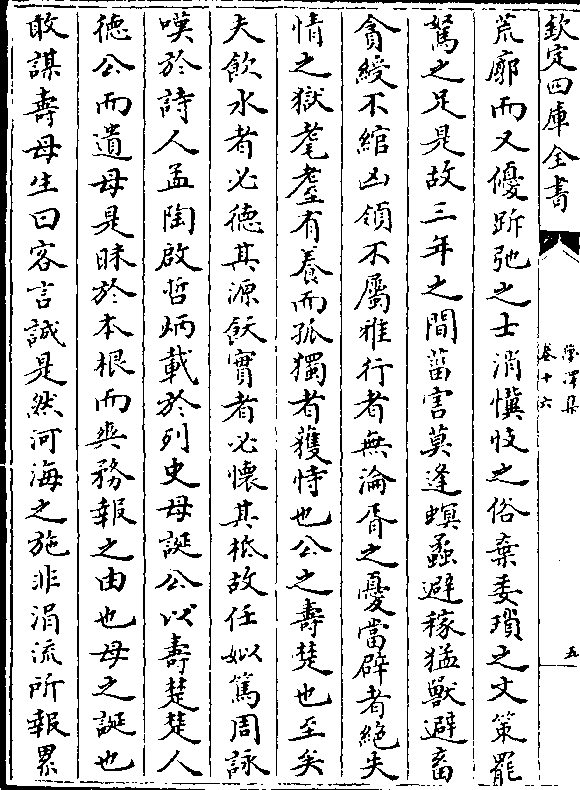 欽定四庫全書
卷十六
五
荒廓而又優跅弛之士消懻忮之俗棄委瑣之文策罷
駑之足是故三年之間菑害莫逢螟蟊避稼猛獸避畜
貪綬不綰凶領不屬雅行者無淪胥之憂當辟者絶失
情之獄耄耋有養而孤獨者獲恃也公之壽楚也至矣
夫飲水者必德其源飫實者必懷其柢故任姒篤周詠
嘆於詩人孟陶啟哲炳載於列史母誕公以壽楚楚人
德公而遺母是昧於本根而爽務報之由也母之誕也
敢謀壽母生曰客言誠是然河海之施非涓流所報累